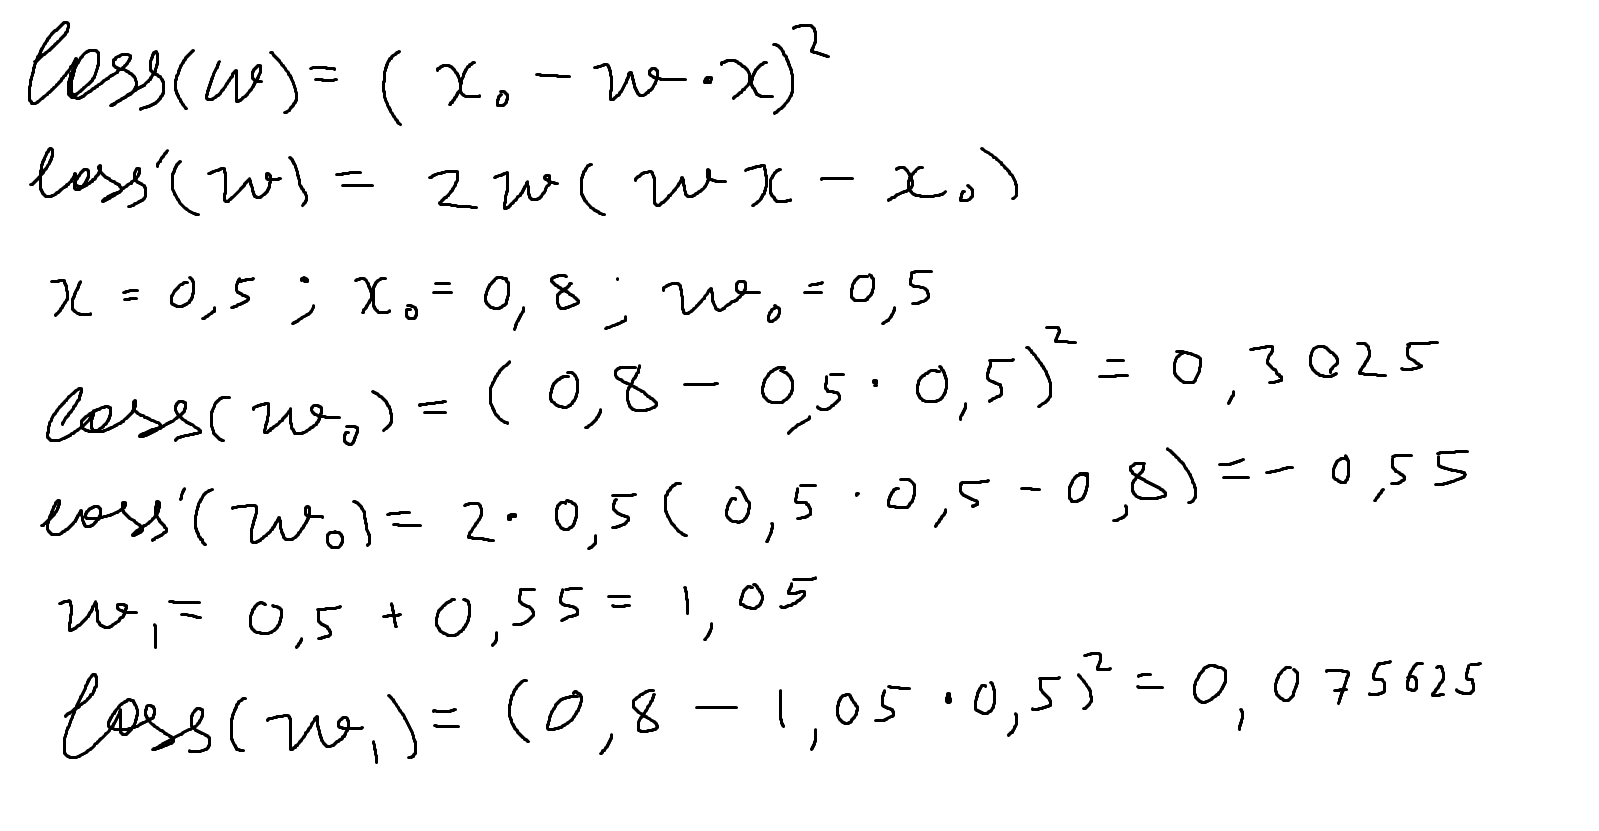 loss(w) = (x₀ - w · x)²
loss'(w) = 2w(wx - x₀)
x = 0,5 ; x₀ = 0,8 ; w₀ = 0,5
loss(w₀) = (0,8 - 0,5 · 0,5)² = 0,3025
loss'(w₀) = 2 · 0,5(0,5 · 0,5 - 0,8) = - 0,55
w₁ = 0,5 + 0,55 = 1,05
loss(w₁) = (0,8 - 1,05 · 0,5)² = 0,075625